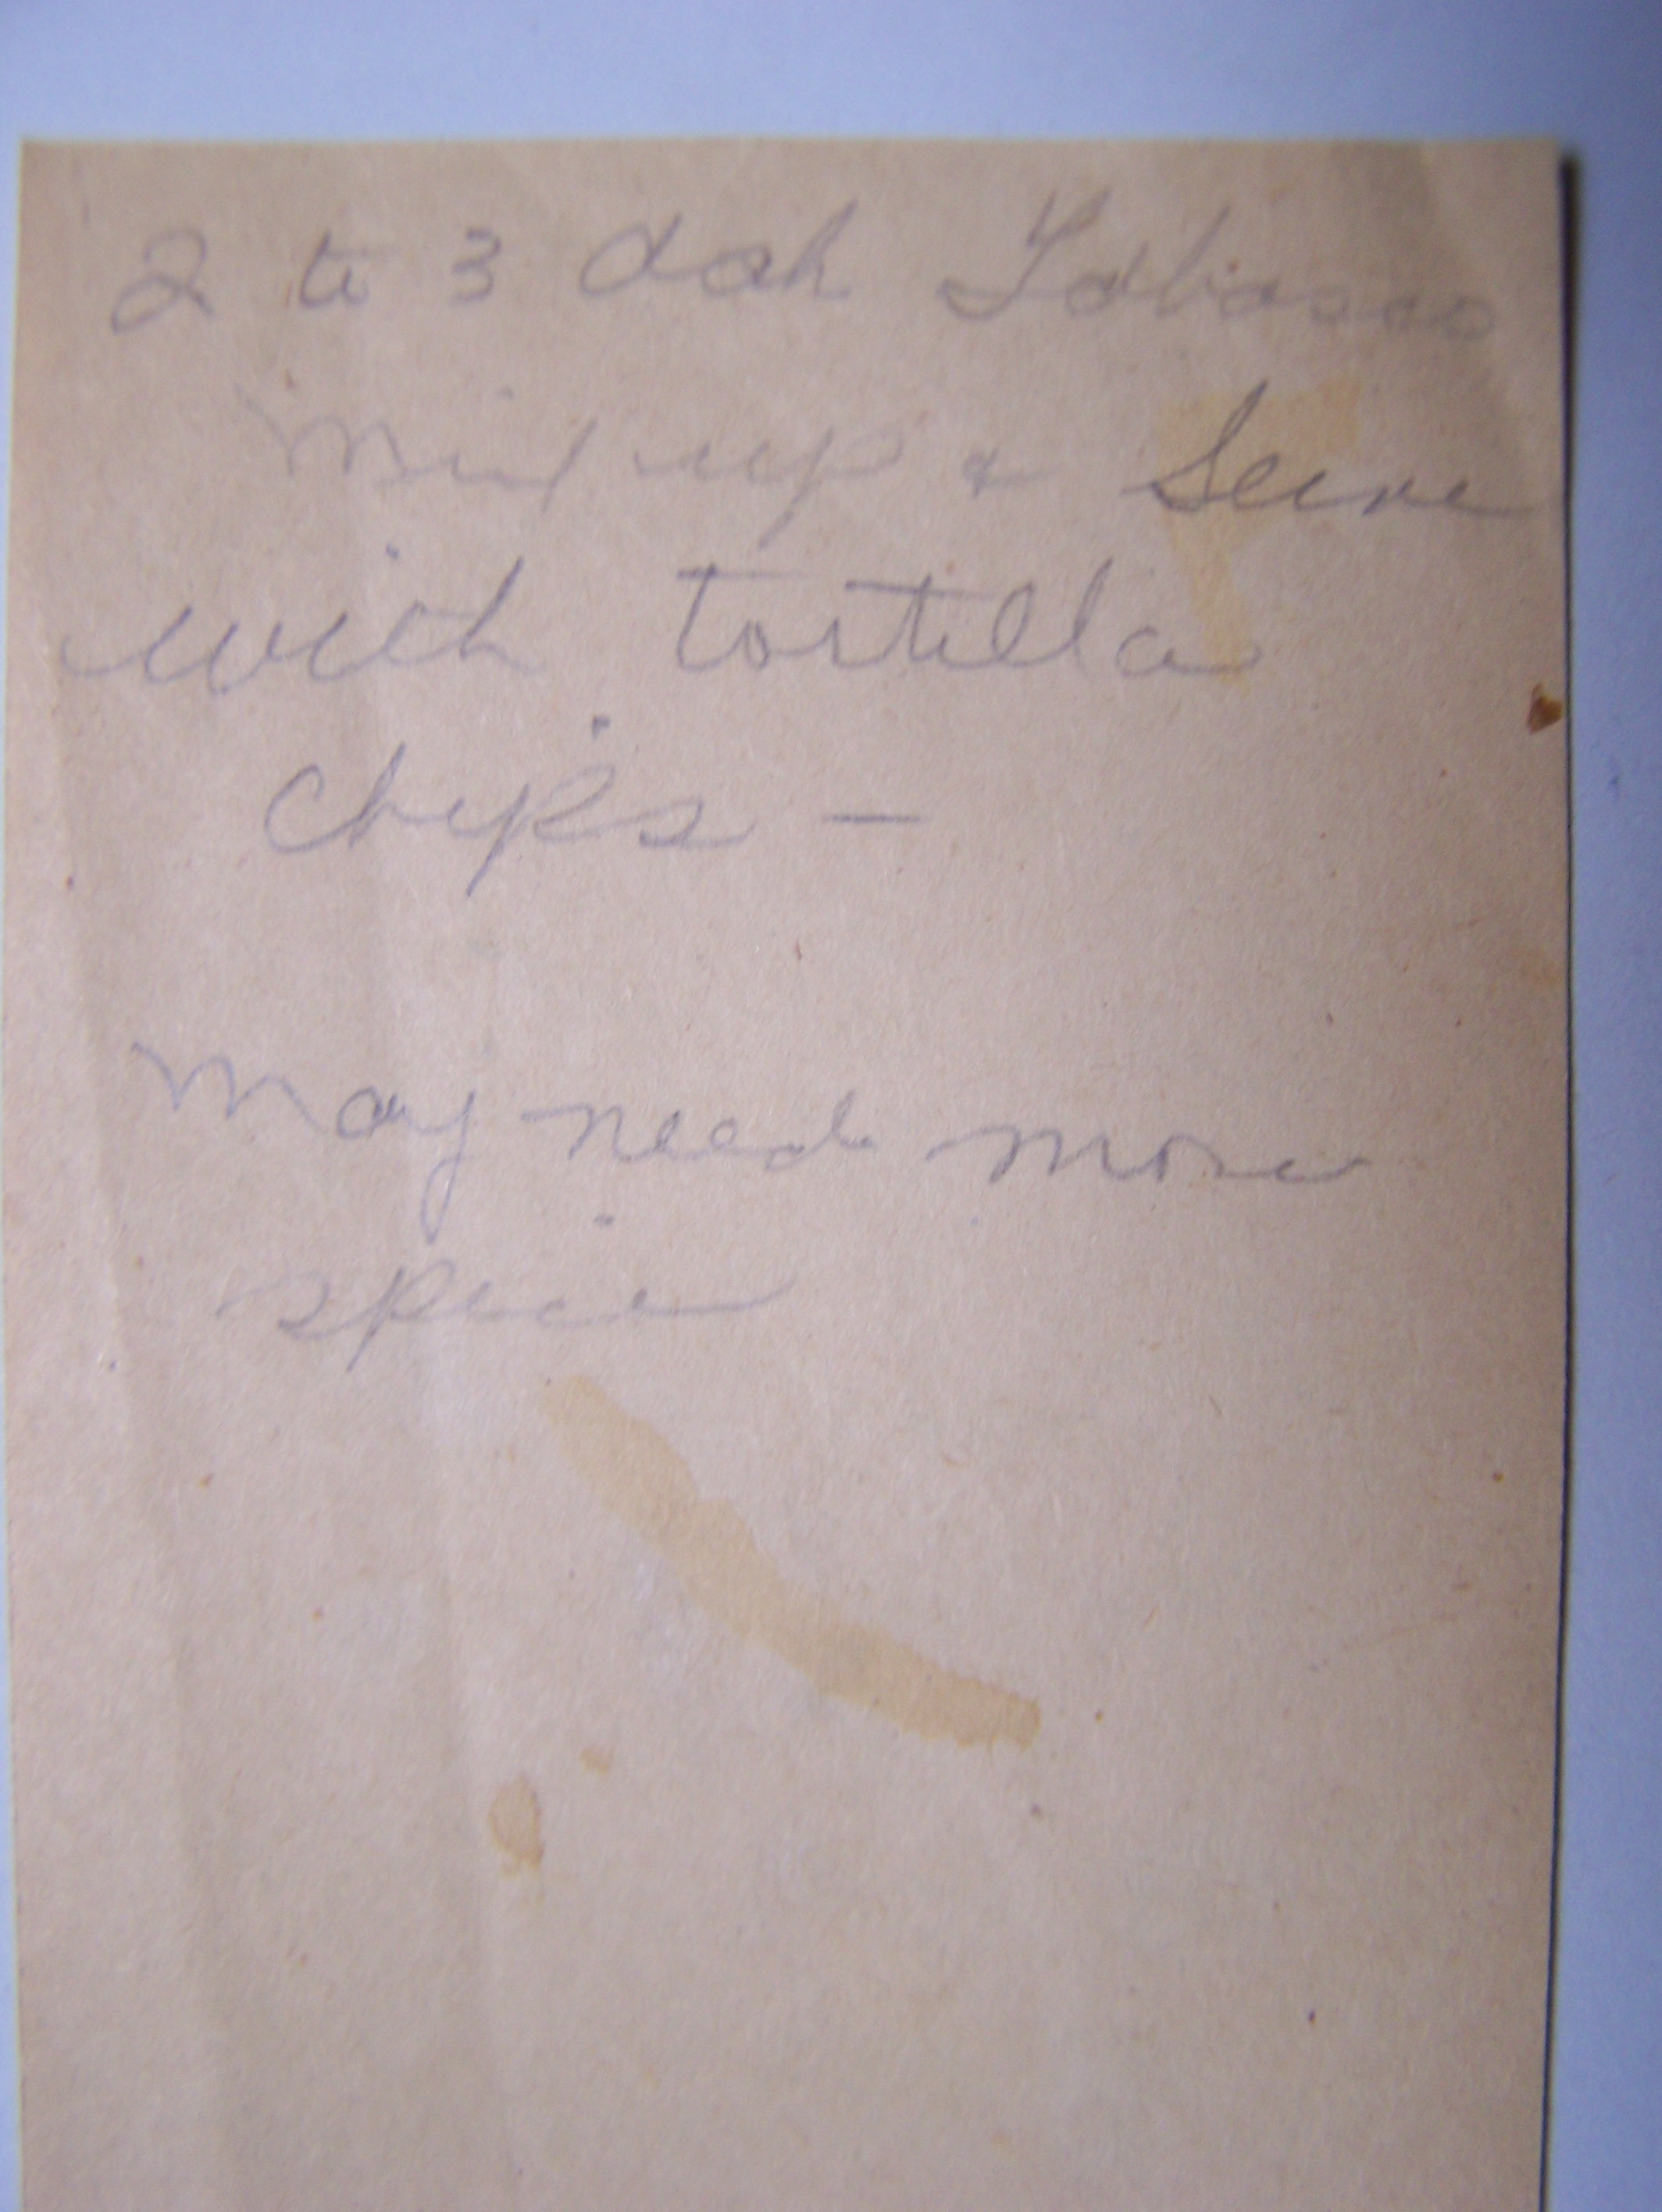 2 to 3 dash Tobasco
Mix up & Serve
with tortilla
chips —
May need more
spice